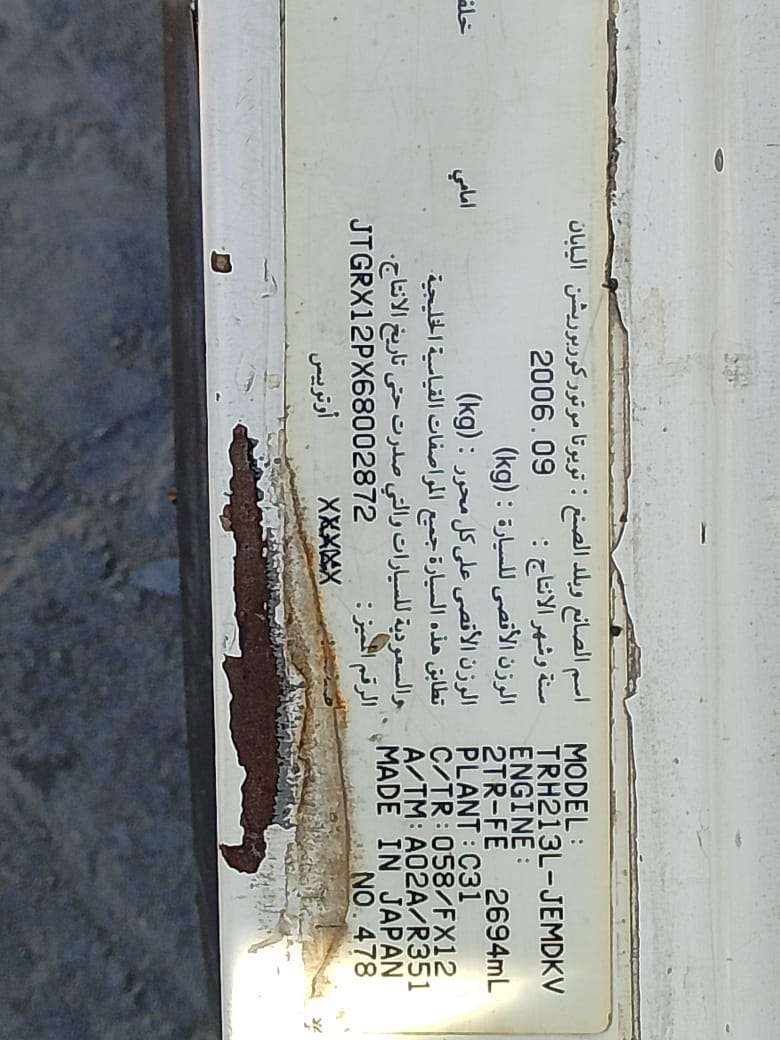 اسم الصانع وبلد الصنع : تويوتا موتور كوربوريشن اليابان
سنة وشهر الانتاج : 2006.09
الوزن الأقصى للسيارة : (kg)
الوزن الأقصى على كل محور : (kg) امامي خلفي
تطابق هذه السيارة جميع المواصفات القياسة الخليجية
والسعودية للسيارات والتي صدرت حتى تاريخ الانتاج.
الرقم المميز : JTGRX12PX68002872
XXXXX أوتوبيس
MODEL :
TRH213L-JEMDKV
ENGINE :
2TR-FE 2694mL
PLANT : C31
C/TR : 058/FX12
A/TM : A02A/R351
MADE IN JAPAN
NO. 478